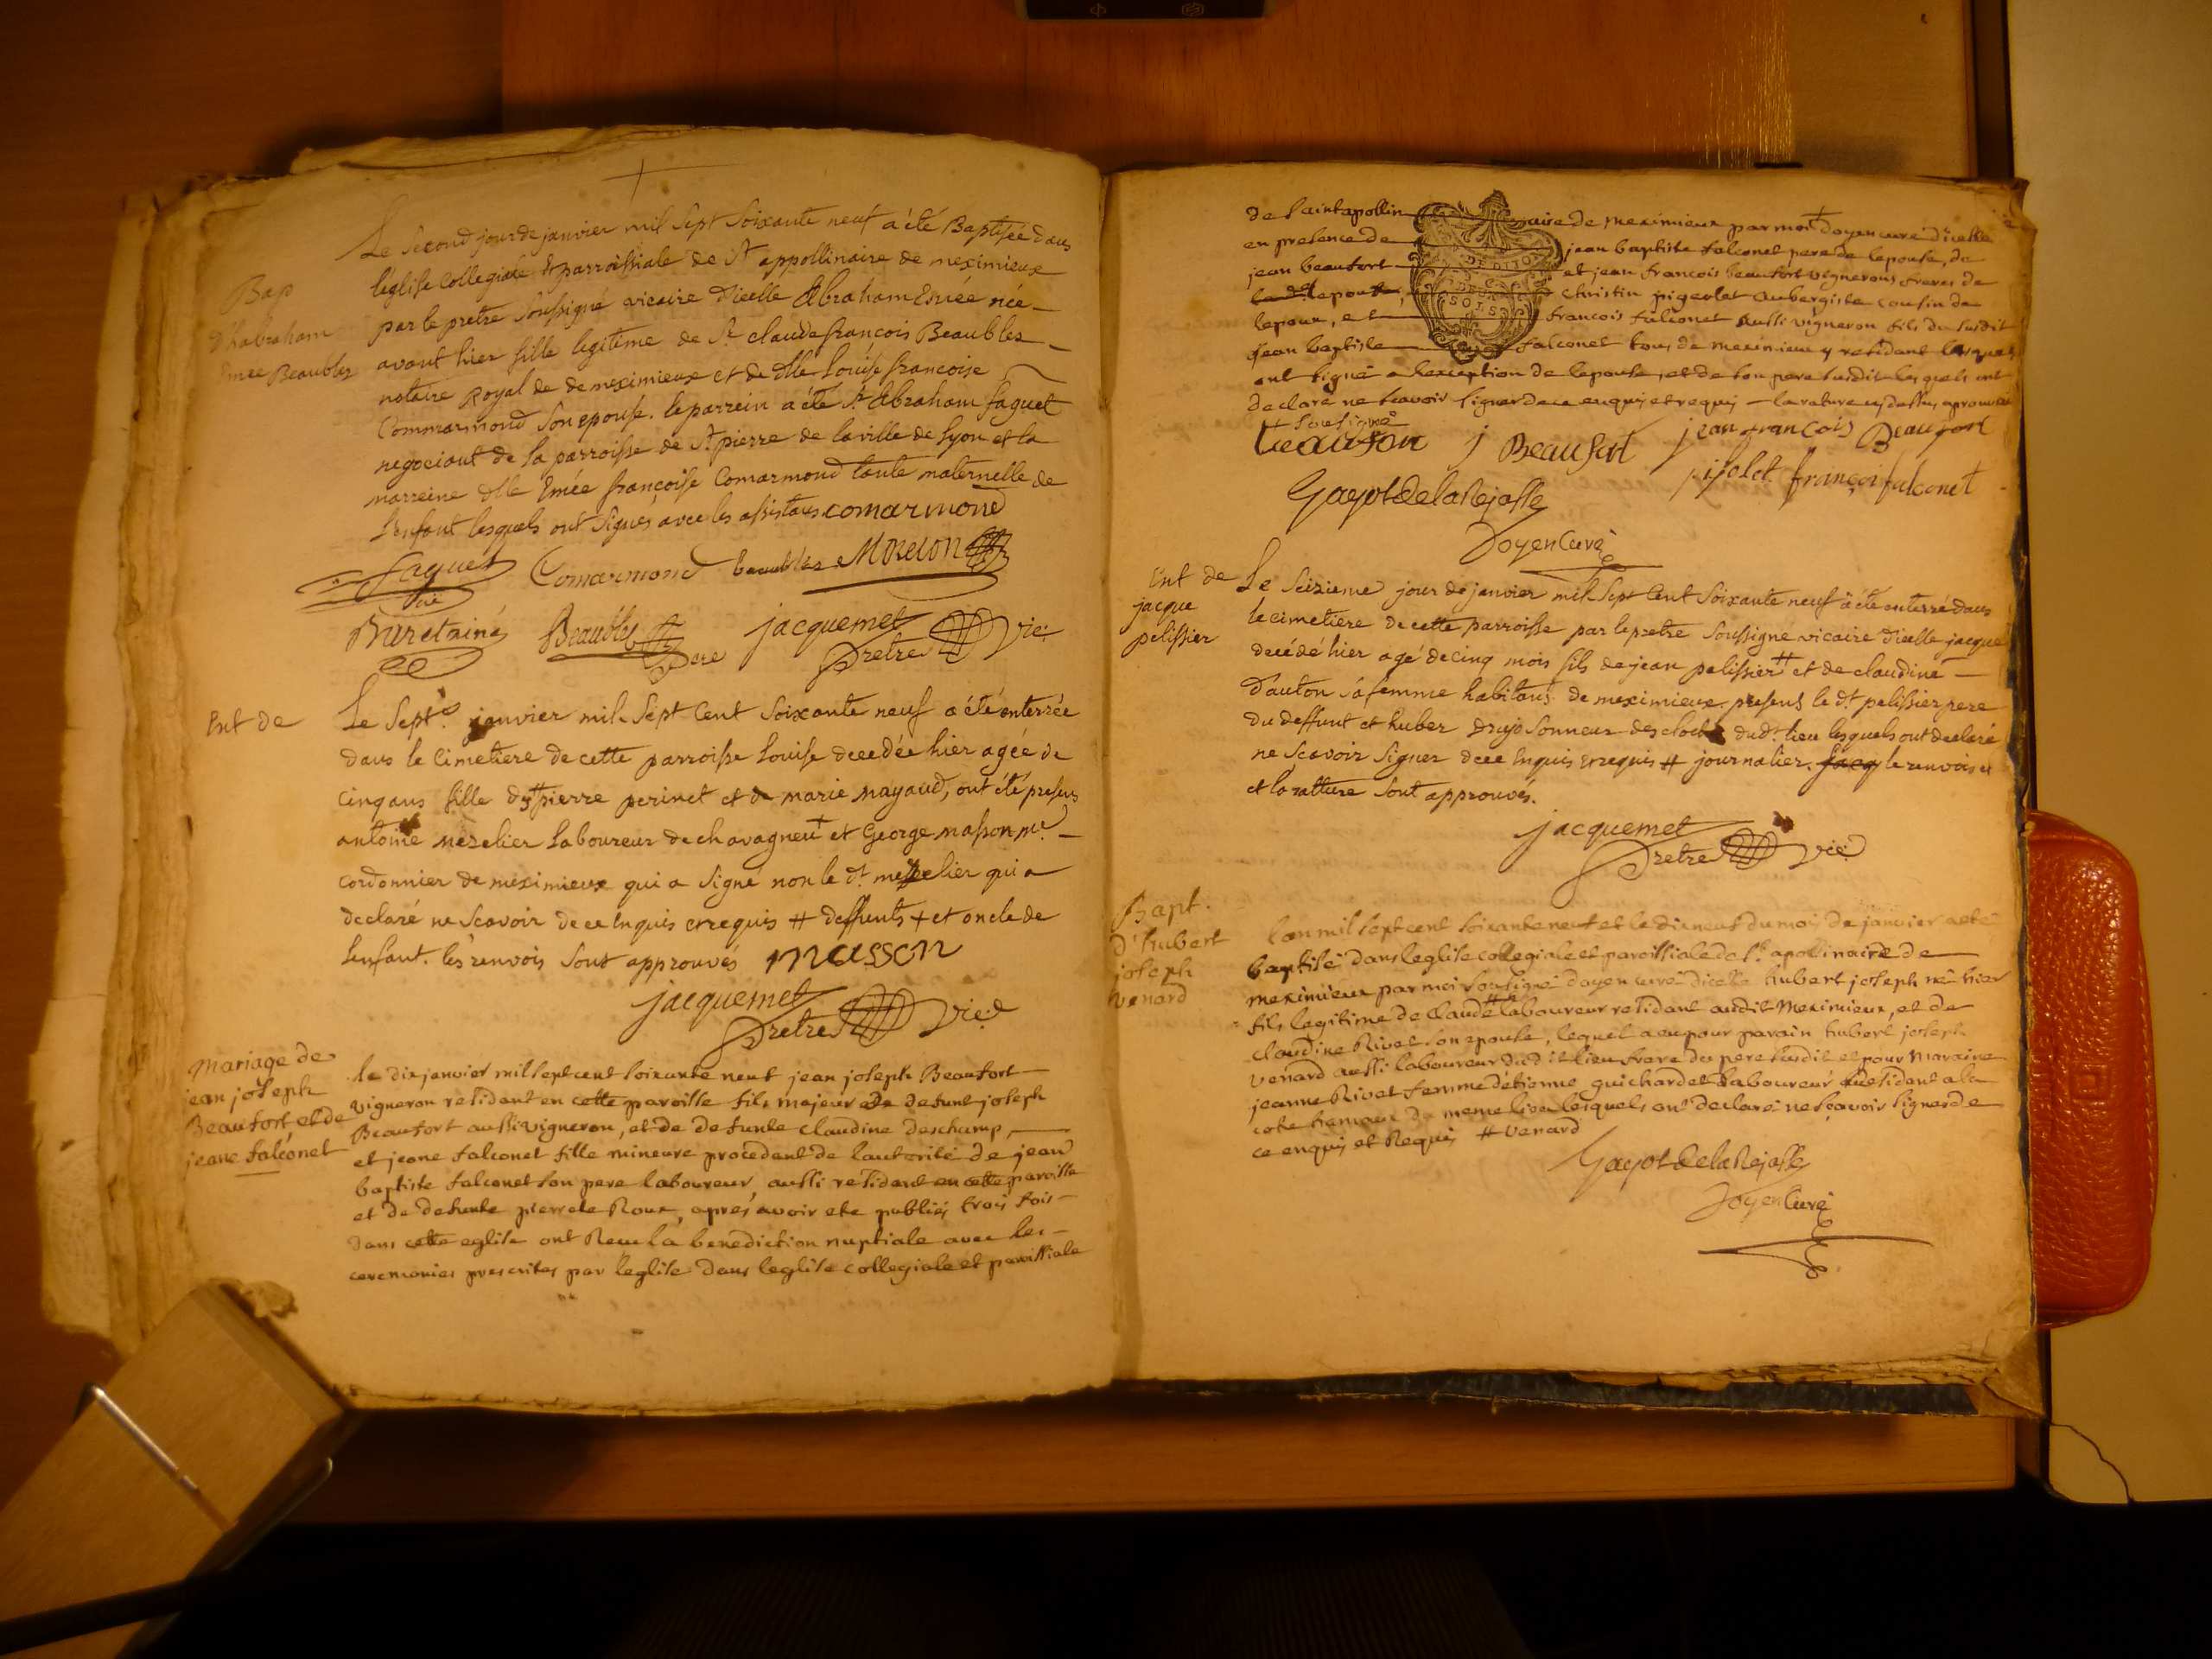 Bap
d'habraham
Emée Beaublez
Le second jour de janvier mil sept soixante neuf a été Baptisée dans
léglise Collegiale & parroissiale de St appollinaire de meximieux
par le pretre soussigné vicaire d'icelle Abraham Emée née
avant hier fille legitime de Sr claude françois Beaublez
notaire Royal de de meximieux et de dlle Louise francoise
Commarmond son epouse. le parrein a été Sr Abraham faguet
negociant de la parroisse de St pierre de la ville de Lyon et la
marreine dlle Emée françoise Comarmond tante maternelle de
L'enfant lesquels ont signés avec les assistans comarmond
faguet Comarmond beaublez Morelon
Buretaine Beaublez pere jacquemet
pretre vic:
Ent de
Le Septe janvier mil Sept Cent Soixante neuf a été enterrée
dans le Cimetiere de cette parroisse Louise decedée hier agée de
Cinq ans fille de # pierre perinet et de marie mayaud, ont été presens
antoine mezelier Laboureur de chavagneu + et George masson me
cordonnier de meximieux qui a signé non le dt mezelier qui a
declaré ne Scavoir de ce Enquis et requis # deffunts + et oncle de
Lenfant. les renvois sont approuvés masson
jacquemet
pretre vic:
Mariage de
jean joseph
Beaufort et de
jeane falconet
le dix janvier mil sept cent soixante neuf jean joseph Beaufort
vigneron residant en cette paroisse fils majeur de defunt joseph
Beaufort aussi vigneron, et de defunte claudine deschamp,
et jeane falconet fille mineure procedant de lautorité de jean
baptiste falconet son pere laboureur, aussi residant en cette paroisse
et de defunte pierrete Roux, aprés avoir ete publiés trois fois
dans cette eglise ont Receu la benediction nuptiale avec les
ceremonies prescrites par leglise dans leglise collegiale et paroissiale
de saint apollinaire de meximieux par moi + doyen curé d'icelle
en presence de jean baptiste falconet pere de lepouse, de
jean beaufort et jean francois beaufort vignerons freres de
la dt lepouse, christin pigeolet aubergiste cousin de
lepoux, et francois falconet aussi vigneron fils du susdit
jean baptiste falconet tous de meximieux y residant lesquels
ont signé a lexception de lepouse, et de son pere susdit lesquels ont
declaré ne scavoir signer de ce enquis et requis la rature cy dessus aprouvée
+ soussigné
beaufort j Beaufort jean françois Beaufort
pijolet françoi falconet
Gayot de la Rejasse
Doyen Curé
DEUX
SOLS
Ent de
jacque
pelissier
Le Seizieme jour de janvier mil Sept Cent Soixante neuf a été enterré dans
le cimetiere de cette parroisse par le pretre soussigné vicaire d'icelle jacque
decédé hier agé de cinq mois fils de jean pelissier # et de claudine
d'auton sa femme habitans de meximieux. presens le dt pelissier pere
du deffunt et huber drujo sonneur des cloches du dt lieu lesquels ont declaré
ne scavoir signer de ce Enquis et requis # journalier. jacq le renvois et
et la ratture sont approuvés.
jacquemet
pretre vic:
Bapt.
d'hubert
joseph
venard
lan mil sept cent soixante neuf et le dixneuf du moi de janvier a eté
baptisé dans leglise collegiale et paroissiale de St. apollinaire de
meximieux par moi soussigné doyen curé dicelle hubert joseph né hier
fils legitime de claude # laboureur residant audit Meximieux, et de
claudine Rivet son epouse, lequel a eu pour parain hubert joseph
venard aussi laboureur dudit lieu frere du pere susdit et pour maraine
jeanne Rivet femme detienne guichardet laboureur residant a la
cote du meme lieu lesquels ont declaré ne sçavoir signer de
ce enquis et Requis # venard
Gayot de la Rejasse
Doyen Curé